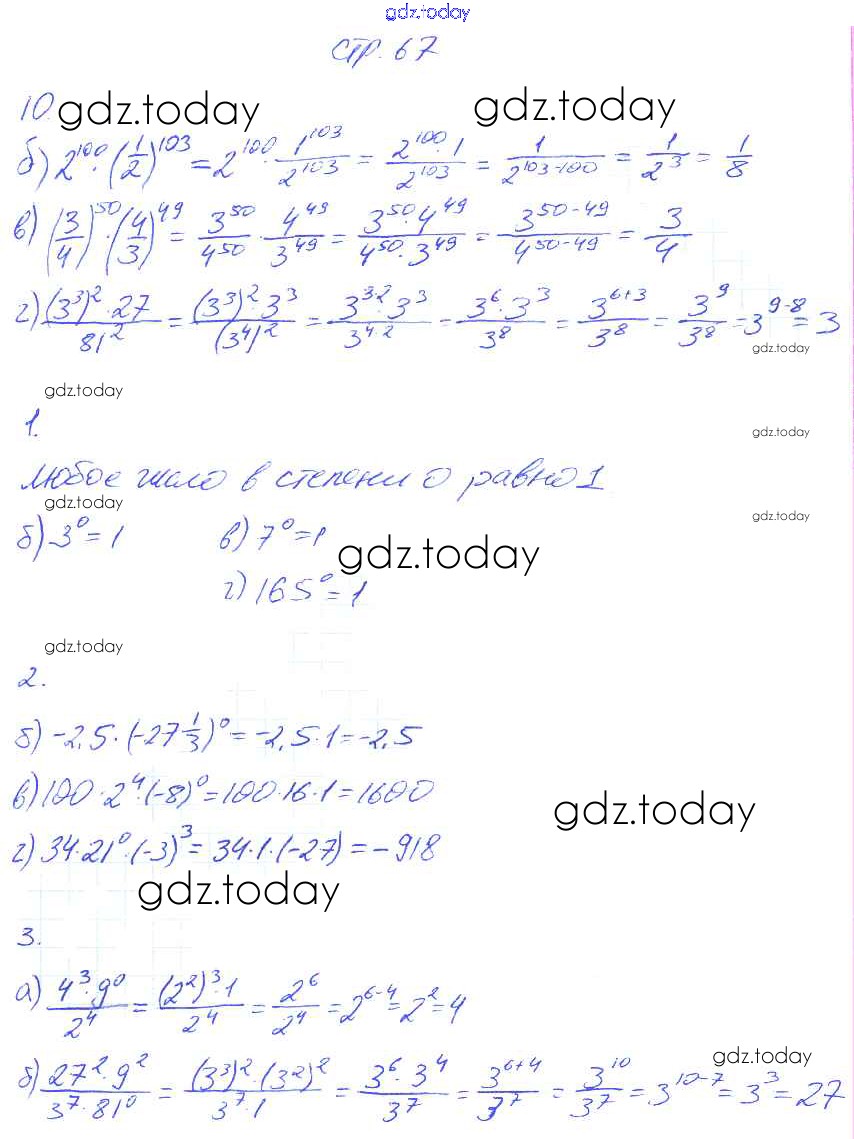 gdz.today
стр. 67
10. gdz.today gdz.today
б) 2^100 · (1/2)^103 = 2^100 · 1^103/2^103 = 2^100 · 1/2^103 = 1/2^(103-100) = 1/2^3 = 1/8
в) (3/4)^50 · (4/3)^49 = 3^50/4^50 · 4^49/3^49 = 3^50 · 4^49/4^50 · 3^49 = 3^(50-49)/4^(50-49) = 3/4
г) (3^3)^2 · 27/81^2 = (3^3)^2 · 3^3/(3^4)^2 = 3^(3·2) · 3^3/3^(4·2) = 3^6 · 3^3/3^8 = 3^(6+3)/3^8 = 3^9/3^8 = 3^(9-8) = 3
gdz.today
gdz.today
1.
gdz.today
Любое число в степени 0 равно 1
gdz.today
gdz.today
б) 3^0 = 1 в) 7^0 = 1
gdz.today
г) 165^0 = 1
gdz.today
2.
б) -2,5 · (-27 1/3)^0 = -2,5 · 1 = -2,5
в) 100 · 2^4 · (-8)^0 = 100 · 16 · 1 = 1600
gdz.today
г) 34 · 21^0 · (-3)^3 = 34 · 1 · (-27) = -918
gdz.today
3.
а) 4^3 · 9^0/2^4 = (2^2)^3 · 1/2^4 = 2^6/2^4 = 2^(6-4) = 2^2 = 4
gdz.today
б) 27^2 · 9^2/3^7 · 81^0 = (3^3)^2 · (3^2)^2/3^7 · 1 = 3^6 · 3^4/3^7 = 3^(6+4)/3^7 = 3^10/3^7 = 3^(10-7) = 3^3 = 27